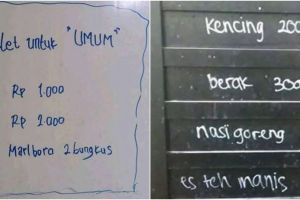 let untuk "UMUM"
Rp 1.000
Rp 2.000
Marlboro 2 bungkus
kencing 200
berak 300
nasi goreng
es teh manis